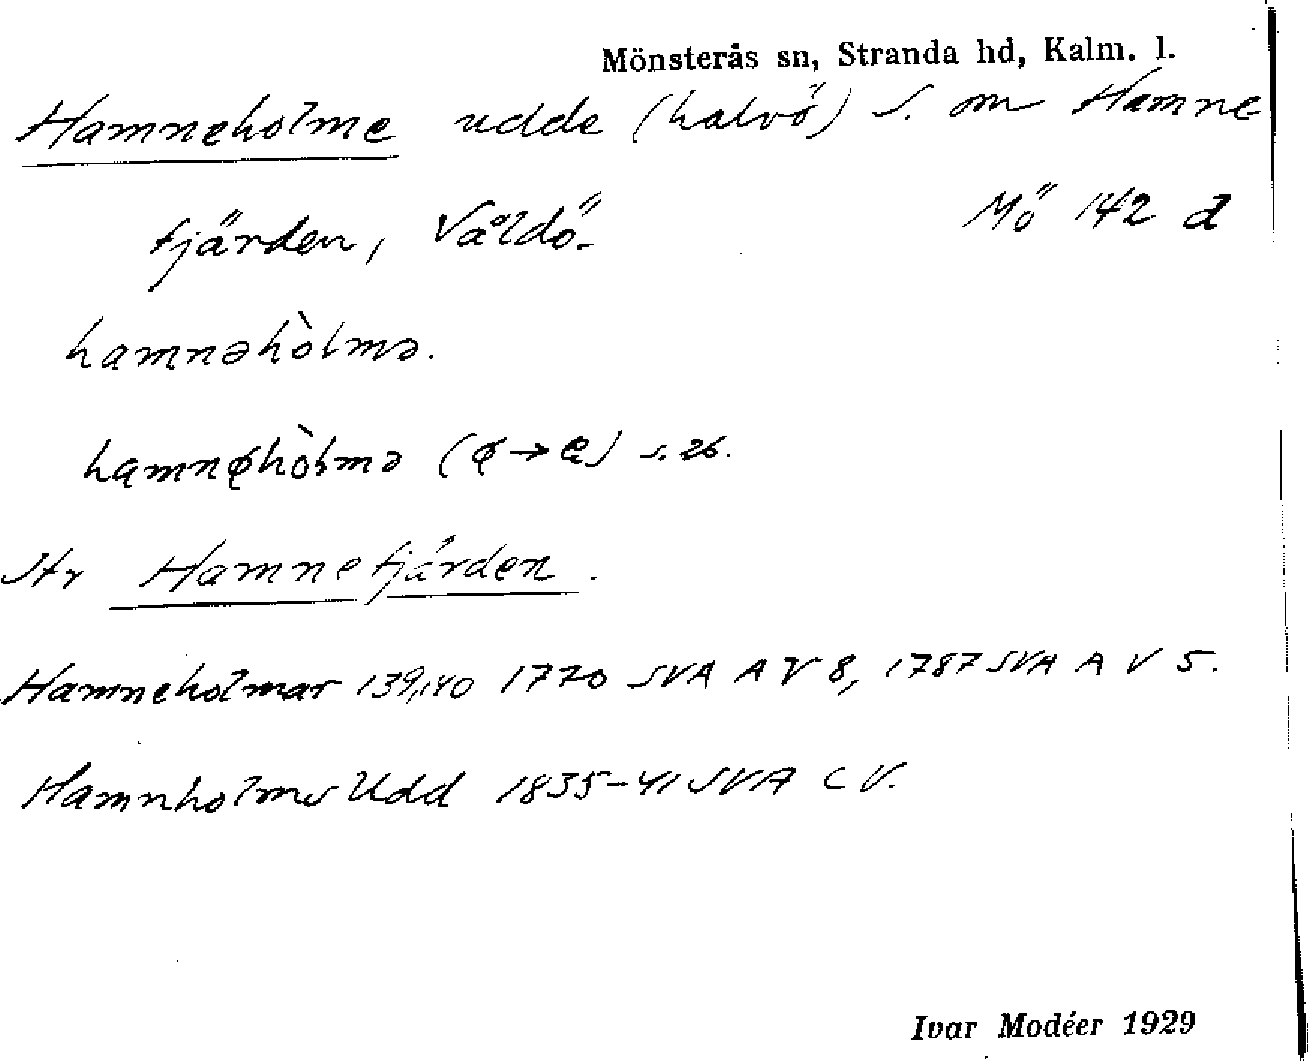 Mönsterås sn, Stranda hd, Kalm. l.
Hamneholme udde (halvö) S. om Hamne
fjärden, Våldö. Mö 142 d
hamnəhòlmə.
hamnhòlmə ( → ) s. 26.
Jfr Hamnefjärden.
Hamneholmar 139,140 1770 SVA A V 8, 1787 SVA A V 5.
Hamnholms Udd 1835-41 SVA C V.
Ivar Modéer 1929